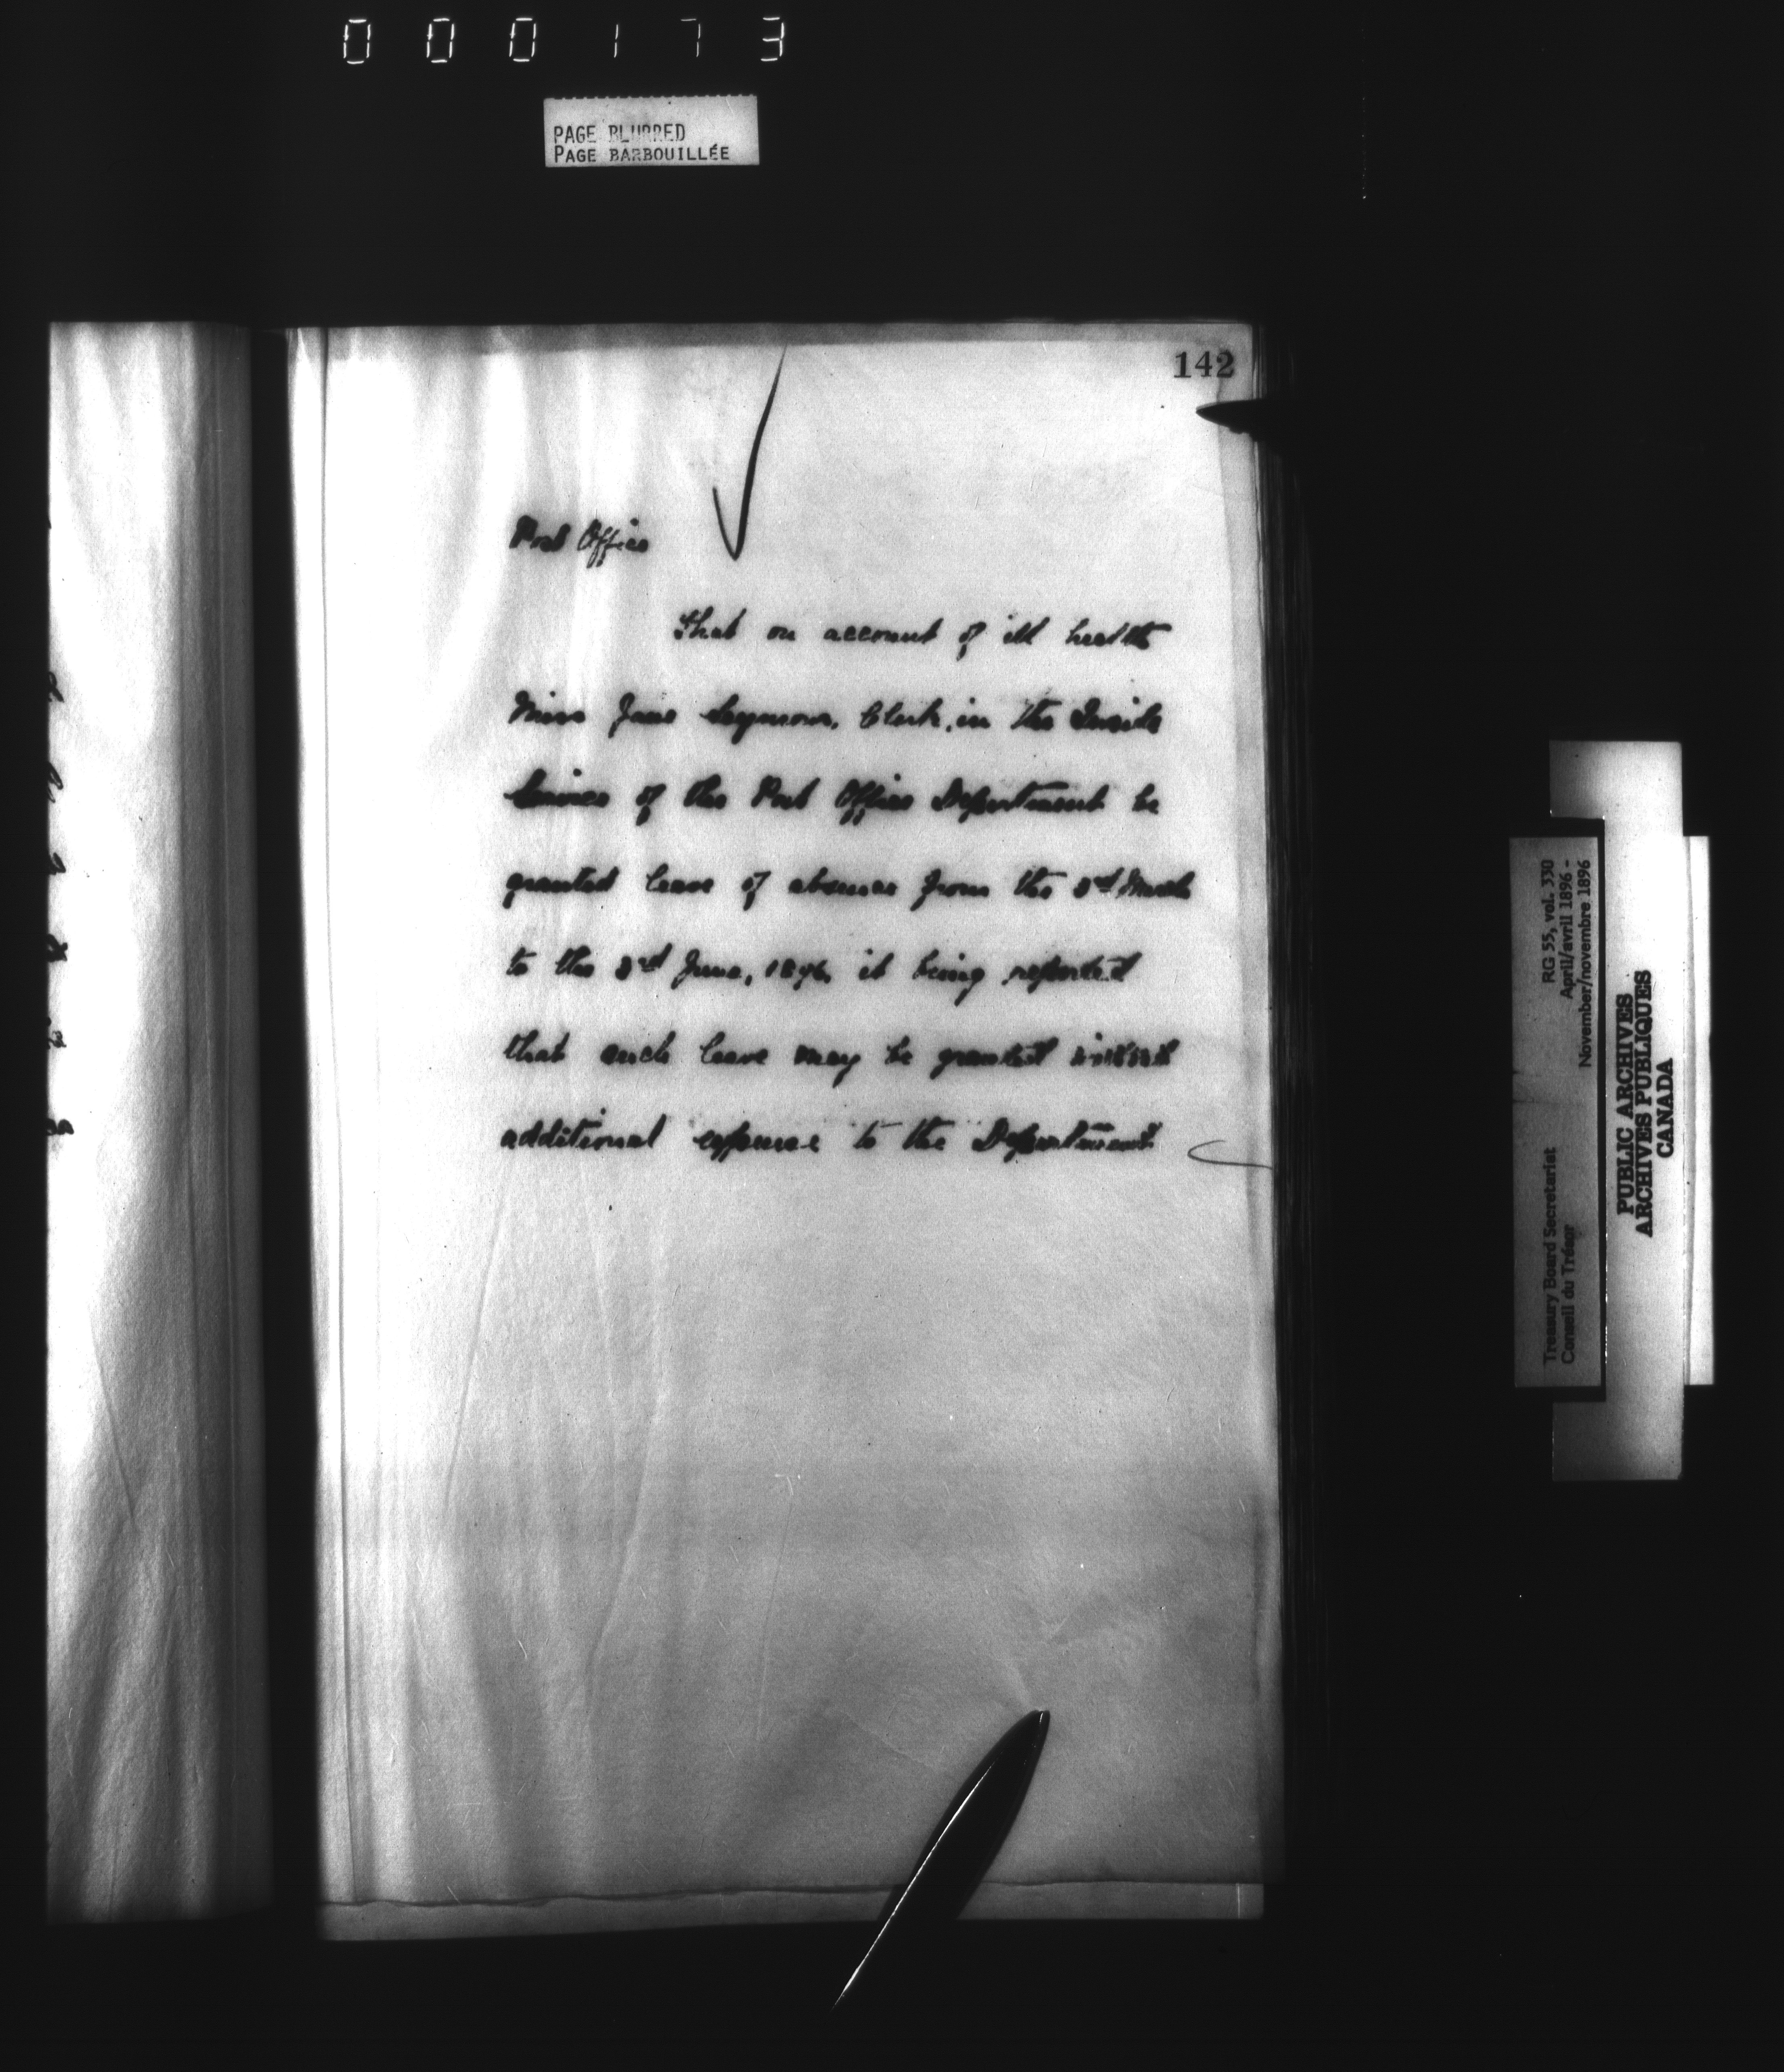 000173
PAGE BLURRED
PAGE BARBOUILLÉE
142
Post Office
That on account of ill health
Miss Jane Seymour, Clerk, in the Inside
Service of the Post Office Department be
granted leave of absence from the 3rd March
to the 3rd June, 1896, it being reported
that such leave may be granted without
additional expense to the Department
RG 55, vol. 330
April/avril 1896 -
November/novembre 1896
Treasury Board Secretariat
Conseil du Trésor
PUBLIC ARCHIVES
ARCHIVES PUBLIQUES
CANADA